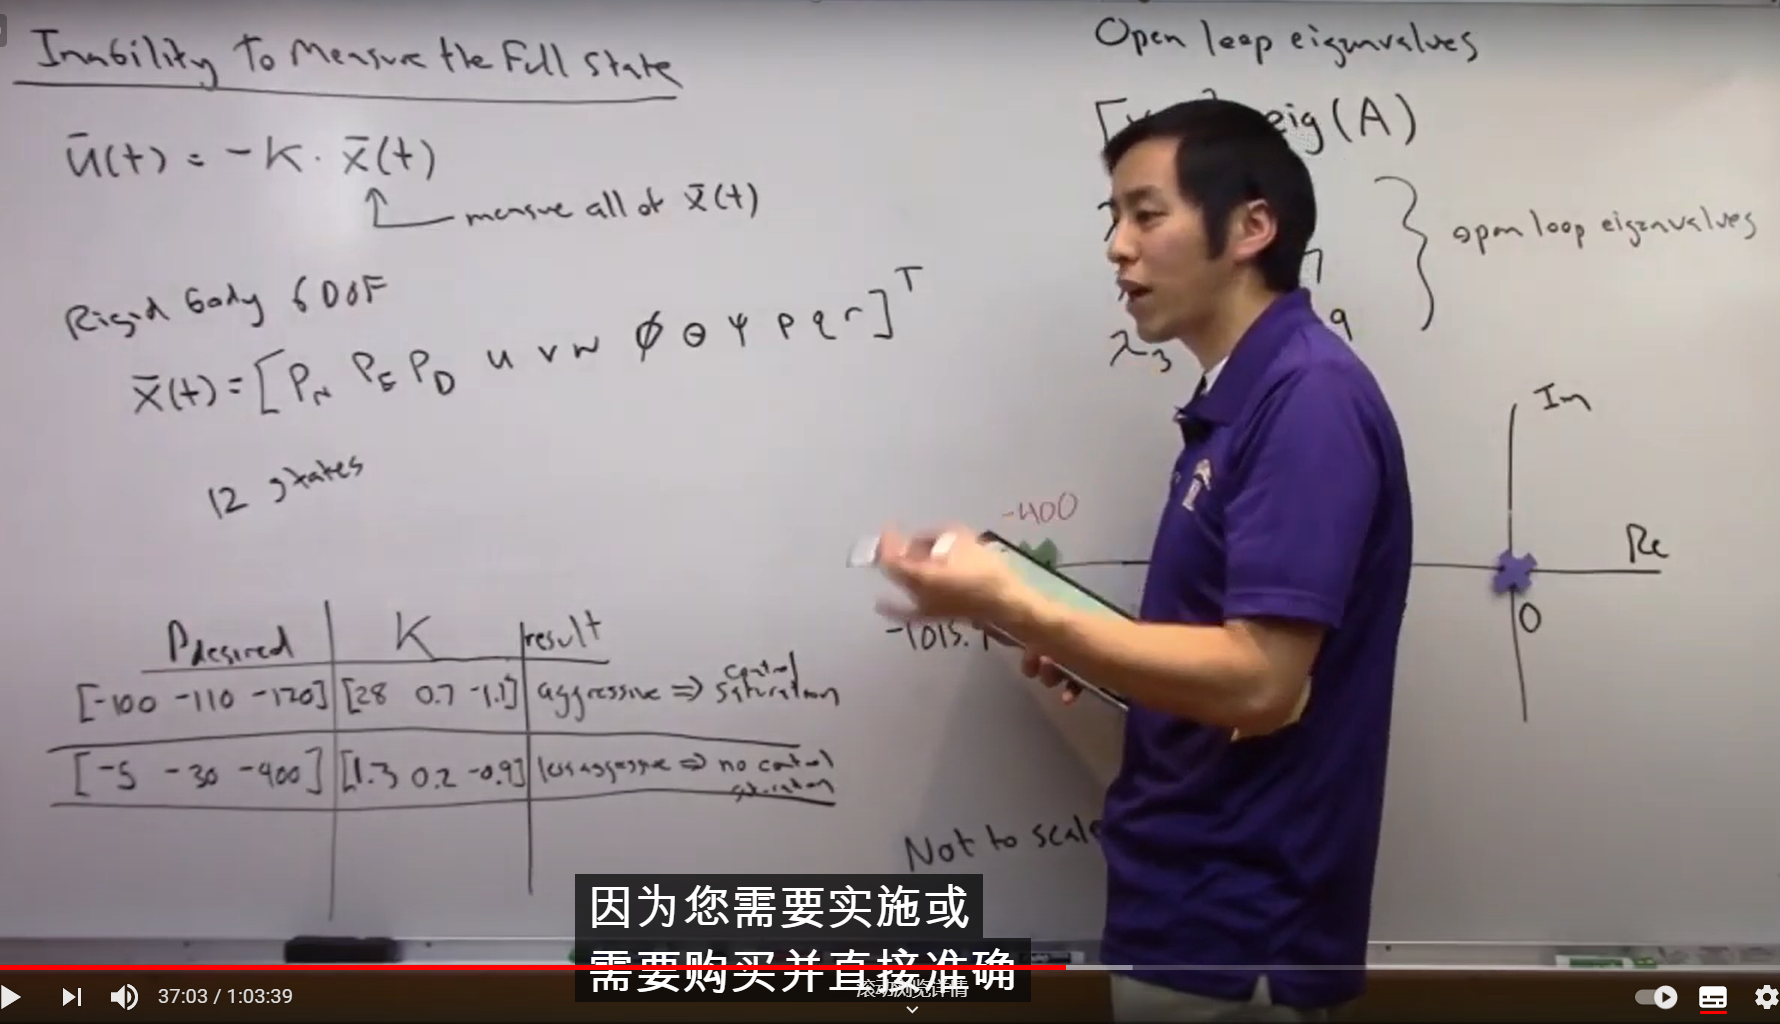 Inability To Measure the Full State
ū(t) = -K · x̄(t)
measure all of x̄(t)
Rigid Body 6 DOF
x̄(t) = [P_N P_E P_D u v w φ θ ψ p q r]^T
12 states
P_desired K result
[-100 -110 -120] [28 0.7 -1.1] aggressive ⇒ control saturation
[-5 -30 -400] [1.3 0.2 -0.9] less aggressive ⇒ no control saturation
Open loop eigenvalues
eig(A)
λ₃
open loop eigenvalues
Im
-400
Re
0
-1015.
Not to scale
因为您需要实施或
需要购买并直接准确
滚动浏览详情
37:03 / 1:03:39